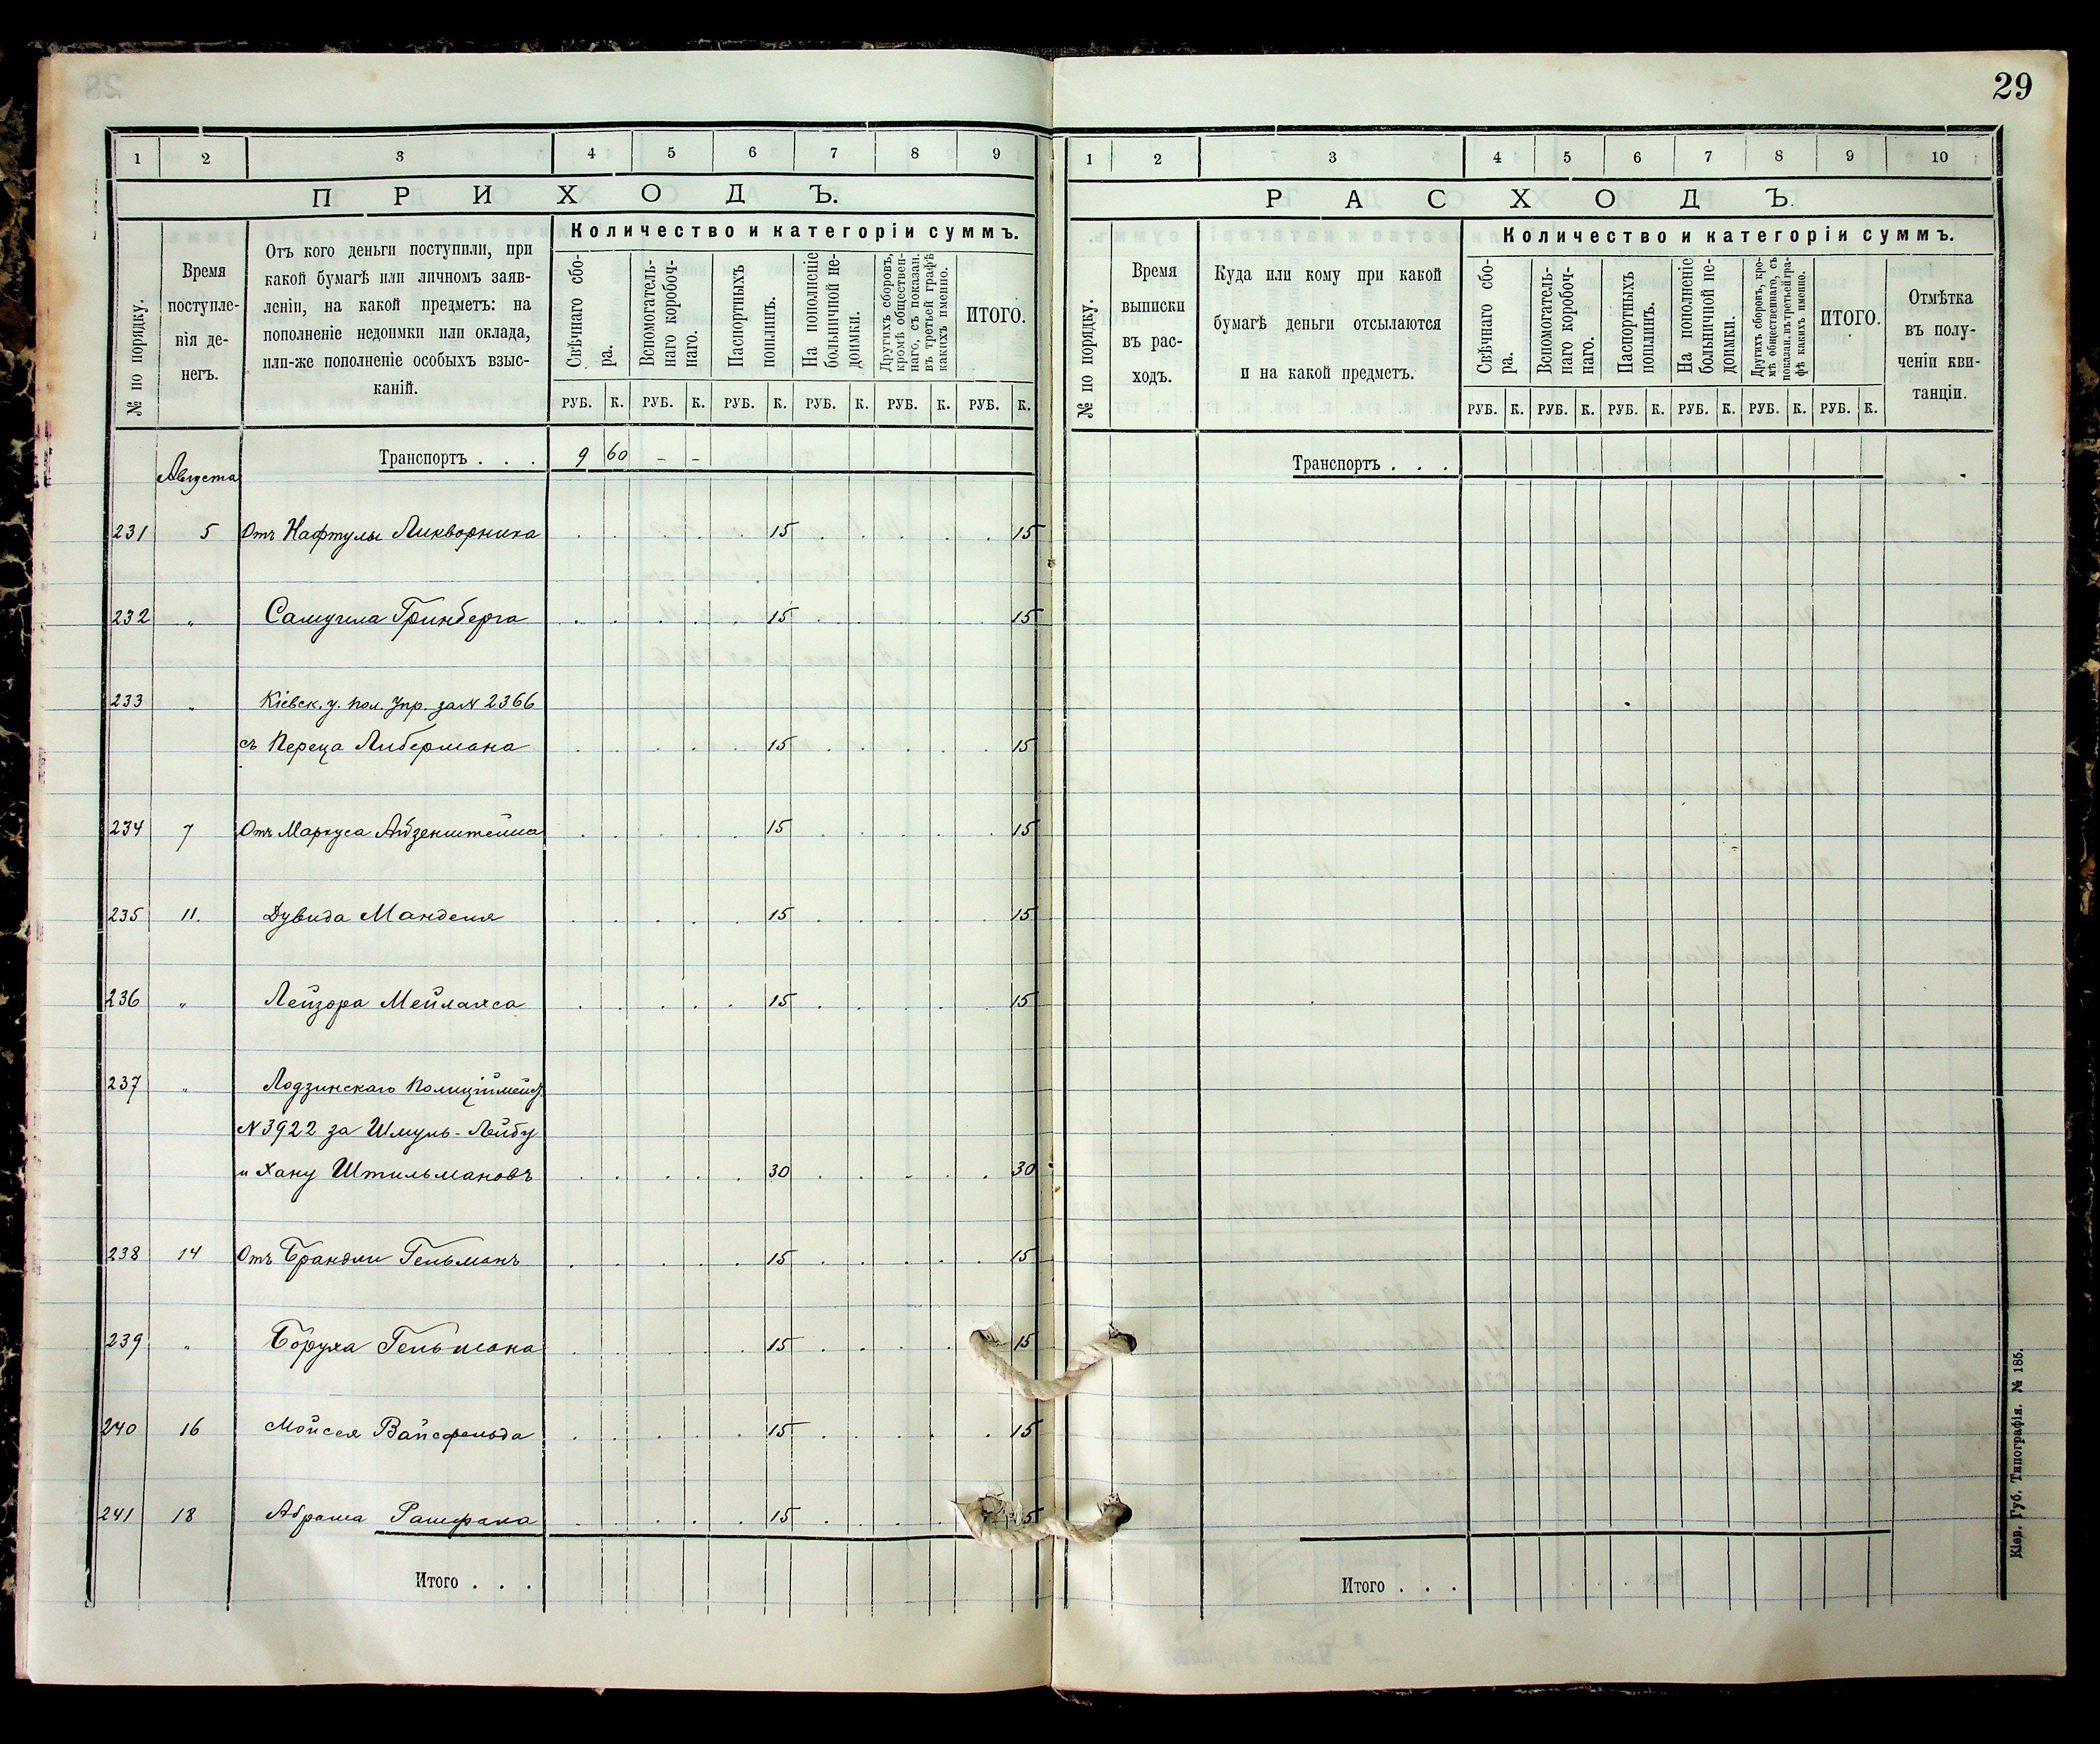 29
1 2 3 4 5 6 7 8 9
ПРИХОДЪ.
№ по порядку.
Время поступле-
нія де-
негъ.
Отъ кого деньги поступили, при
какой бумагѣ или личномъ заяв-
леніи, на какой предметъ: на
пополненіе недоимки или оклада,
или-же пополненіе особыхъ взыс-
каній.
Количество и категоріи суммъ.
Свѣчнаго сбо-
ра.
Вспомогатель-
наго коробоч-
наго.
Паспортныхъ
пошлинъ.
На пополненіе
больничной не-
доимки.
Другихъ сборовъ,
кромѣ обществен-
наго, съ показан.
въ третьей графѣ
какихъ именно.
ИТОГО.
РУБ. К. РУБ. К. РУБ. К. РУБ. К. РУБ. К. РУБ. К.
Транспортъ . . . 9 60 - -
Августа
231 5 Отъ Нафтулы Ликворника 15 15
232 " Самуила Гринберга 15 15
233 " Кіевск. у. пол. Упр. за № 2366
съ Переца Либермана 15 15
234 7 Отъ Маркуса Айзенштейна 15 15
235 11. Дувида Манделя 15 15
236 " Лейзора Мейлахса 15 15
237 " Лодзинскаго Полиціймейст.
№ 3922 за Шмуль-Лейбу
и Хану Штильмановъ 30 30
238 14 Отъ Брандли Гельманъ 15 15
239 " Боруха Гельмана 15 15
240 16 Мойсея Вайсфельда 15 15
241 18 Абрама 15 15
Итого . . .
1 2 3 4 5 6 7 8 9 10
РАСХОДЪ.
№ по порядку.
Время
выписки
въ рас-
ходъ.
Куда или кому при какой
бумагѣ деньги отсылаются
и на какой предметъ.
Количество и категоріи суммъ.
Свѣчнаго сбо-
ра.
Вспомогатель-
наго коробоч-
наго.
Паспортныхъ
пошлинъ.
На пополненіе
больничной не-
доимки.
Другихъ сборовъ, кро-
мѣ общественнаго, съ
показан. въ третьей гра-
фѣ какихъ именно.
ИТОГО.
Отмѣтка
въ полу-
ченіи кви-
танціи.
РУБ. К. РУБ. К. РУБ. К. РУБ. К. РУБ. К. РУБ. К.
Транспортъ . . .
Итого . . .
Кіев. Губ. Типографія. № 185.